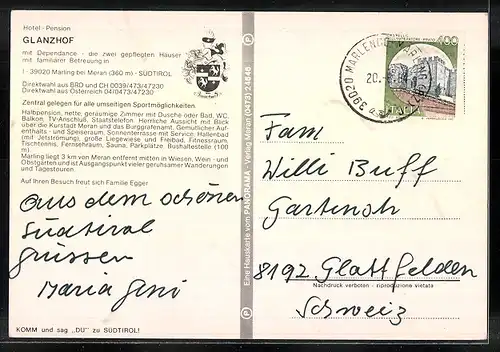 Hotel - Pension
GLANZHOF
mit Dependance - die zwei gepflegten Häuser
mit familiärer Betreuung in
I - 39020 Marling bei Meran (360 m) - SÜDTIROL
Direktwahl aus BRD und CH 0039/473/47230
Direktwahl aus Österreich 04/0473/47230
Zentral gelegen für alle umseitigen Sportmöglichkeiten.
Halbpension, nette, geräumige Zimmer mit Dusche oder Bad, WC,
Balkon, TV-Anschluß, Stastelefon. Herrliche Aussicht mit Blick
über die Kurstadt Meran und das Burggrafenamt. Gemütlicher Auf-
enthalts - und Speiseraum, Sonnenterrasse mit Service. Hallenbad
mit Jetströmung, große Liegewiese und Freibad, Fitnessraum,
Tischtennis, Fernsehraum, Sauna, Parkplätze. Bushaltestelle (100
m).
Marling liegt 3 km von Meran entfernt mitten in Wiesen, Wein - und
Obstgärten und ist Ausgangspunkt vieler geruhsamer Wanderungen
und Tagestouren.
Auf Ihren Besuch freut sich Familie Egger
Aus dem schönen
Südtirol
grüssen
Maria
KOMM und sag „DU" zu SÜDTIROL!
Eine Hauskarte vom PANORAMA - Verlag Meran (0473) 24646
39020 MARLENGO
20.
400
ITALIA
Fam
Willi Buff
8192 Glattfelden
Nachdruck verboten - riproduzione vietata
Schweiz